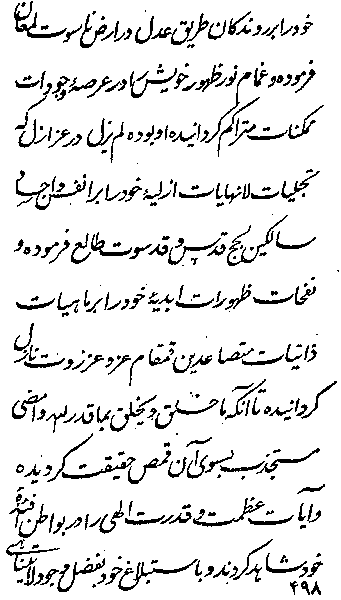 خود را بر روندگان طریق عدل در ارض ناسوت لمعان
فرموده و غمام نور ظهور خویش را در عرصهٔ وجودات
ممکنات متراکم گردانیده او بوده لم یزل در عز ازل که
تجلیات لانهایات ازلیهٔ خود را بر انفس و اجساد
سالکین لجج قدس و قدسوت طالع فرموده و
نفحات ظهورات ابدیهٔ خود را بر ماهیات
ذاتیات متصاعدین قمقام عزه و عززوت نازل
گردانیده تا آنکه ما خلق و یخلق بما قدر له و امضی
مستجذب بسوی آن قمص حقیقت گردیده
و آیات عظمت و قدرت الهی را در بواطن افئدهٔ
خود مشاهد گردند و باستبلاغ خود بفضل وجود لایتناهی
۴۹۸